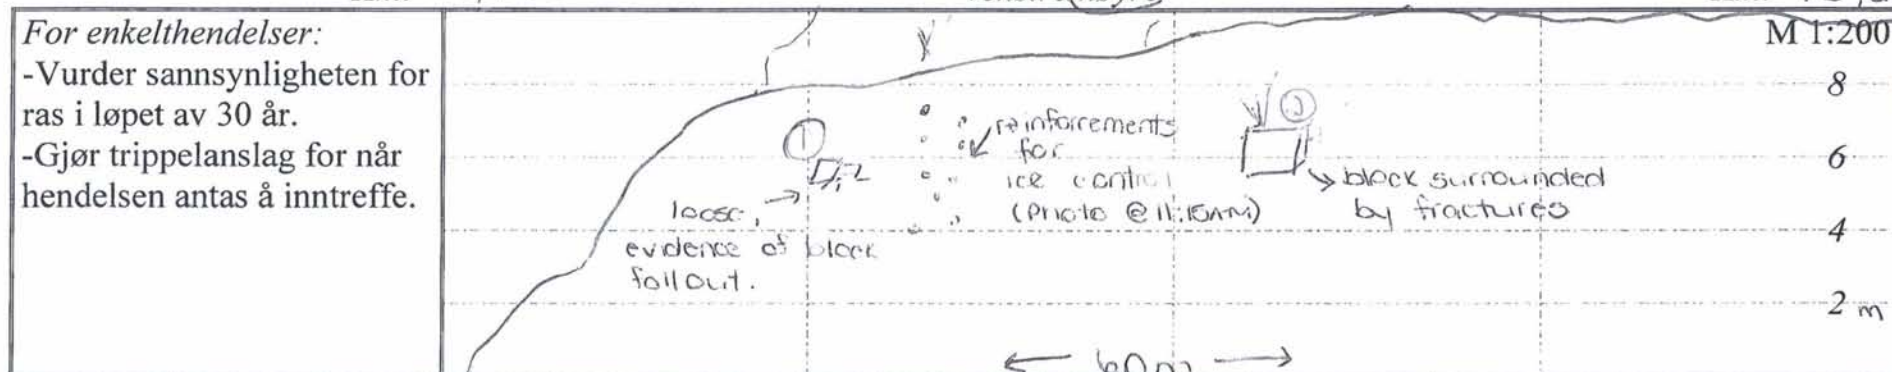 For enkelthendelser:
-Vurder sannsynligheten for
ras i løpet av 30 år.
-Gjør trippelanslag for når
hendelsen antas å inntreffe.
M 1:200
8
6
4
2 m
1
loose,
evidence of block
fallout.
reinforcements
for
ice control
(Photo @ 11:15AM)
2
block surrounded
by fractures
60m